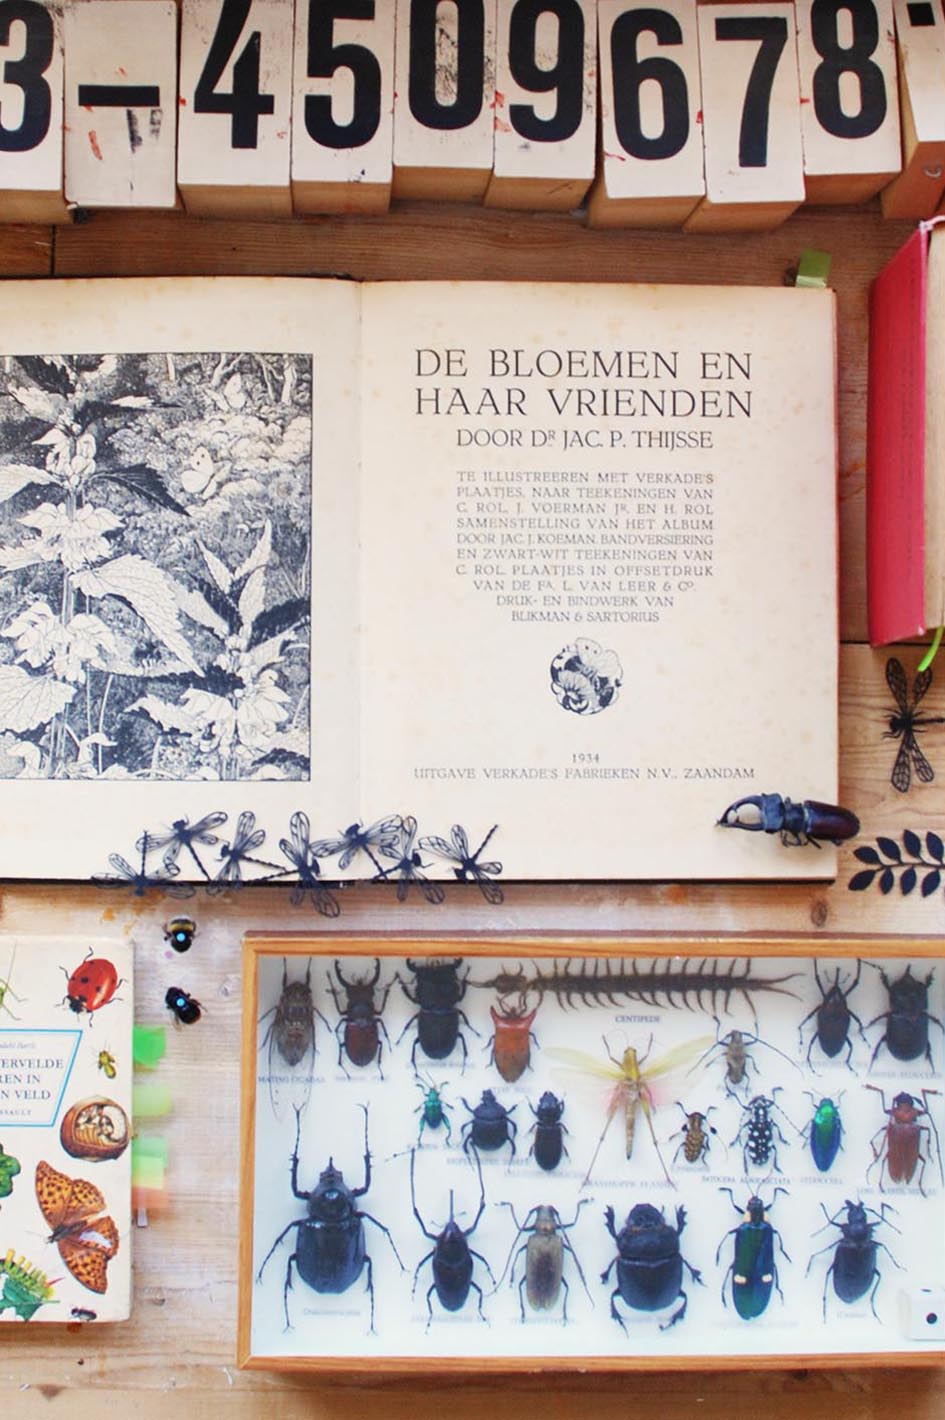 3-4509678
DE BLOEMEN EN
HAAR VRIENDEN
DOOR DR JAC. P. THIJSSE
TE ILLUSTREEREN MET VERKADE'S
PLAATJES, NAAR TEEKENINGEN VAN
C. ROL, J. VOERMAN JR. EN H. ROL
SAMENSTELLING VAN HET ALBUM
DOOR JAC. J. KOEMAN. BANDVERSIERING
EN ZWART-WIT TEEKENINGEN VAN
C. ROL. PLAATJES IN OFFSETDRUK
VAN DE FA. L. VAN LEER & CO.
DRUK- EN BINDWERK VAN
BLIKMAN & SARTORIUS
1934
UITGAVE VERKADE'S FABRIEKEN N.V., ZAANDAM
ERVELDE
REN IN
N VELD
CENTIPEDE